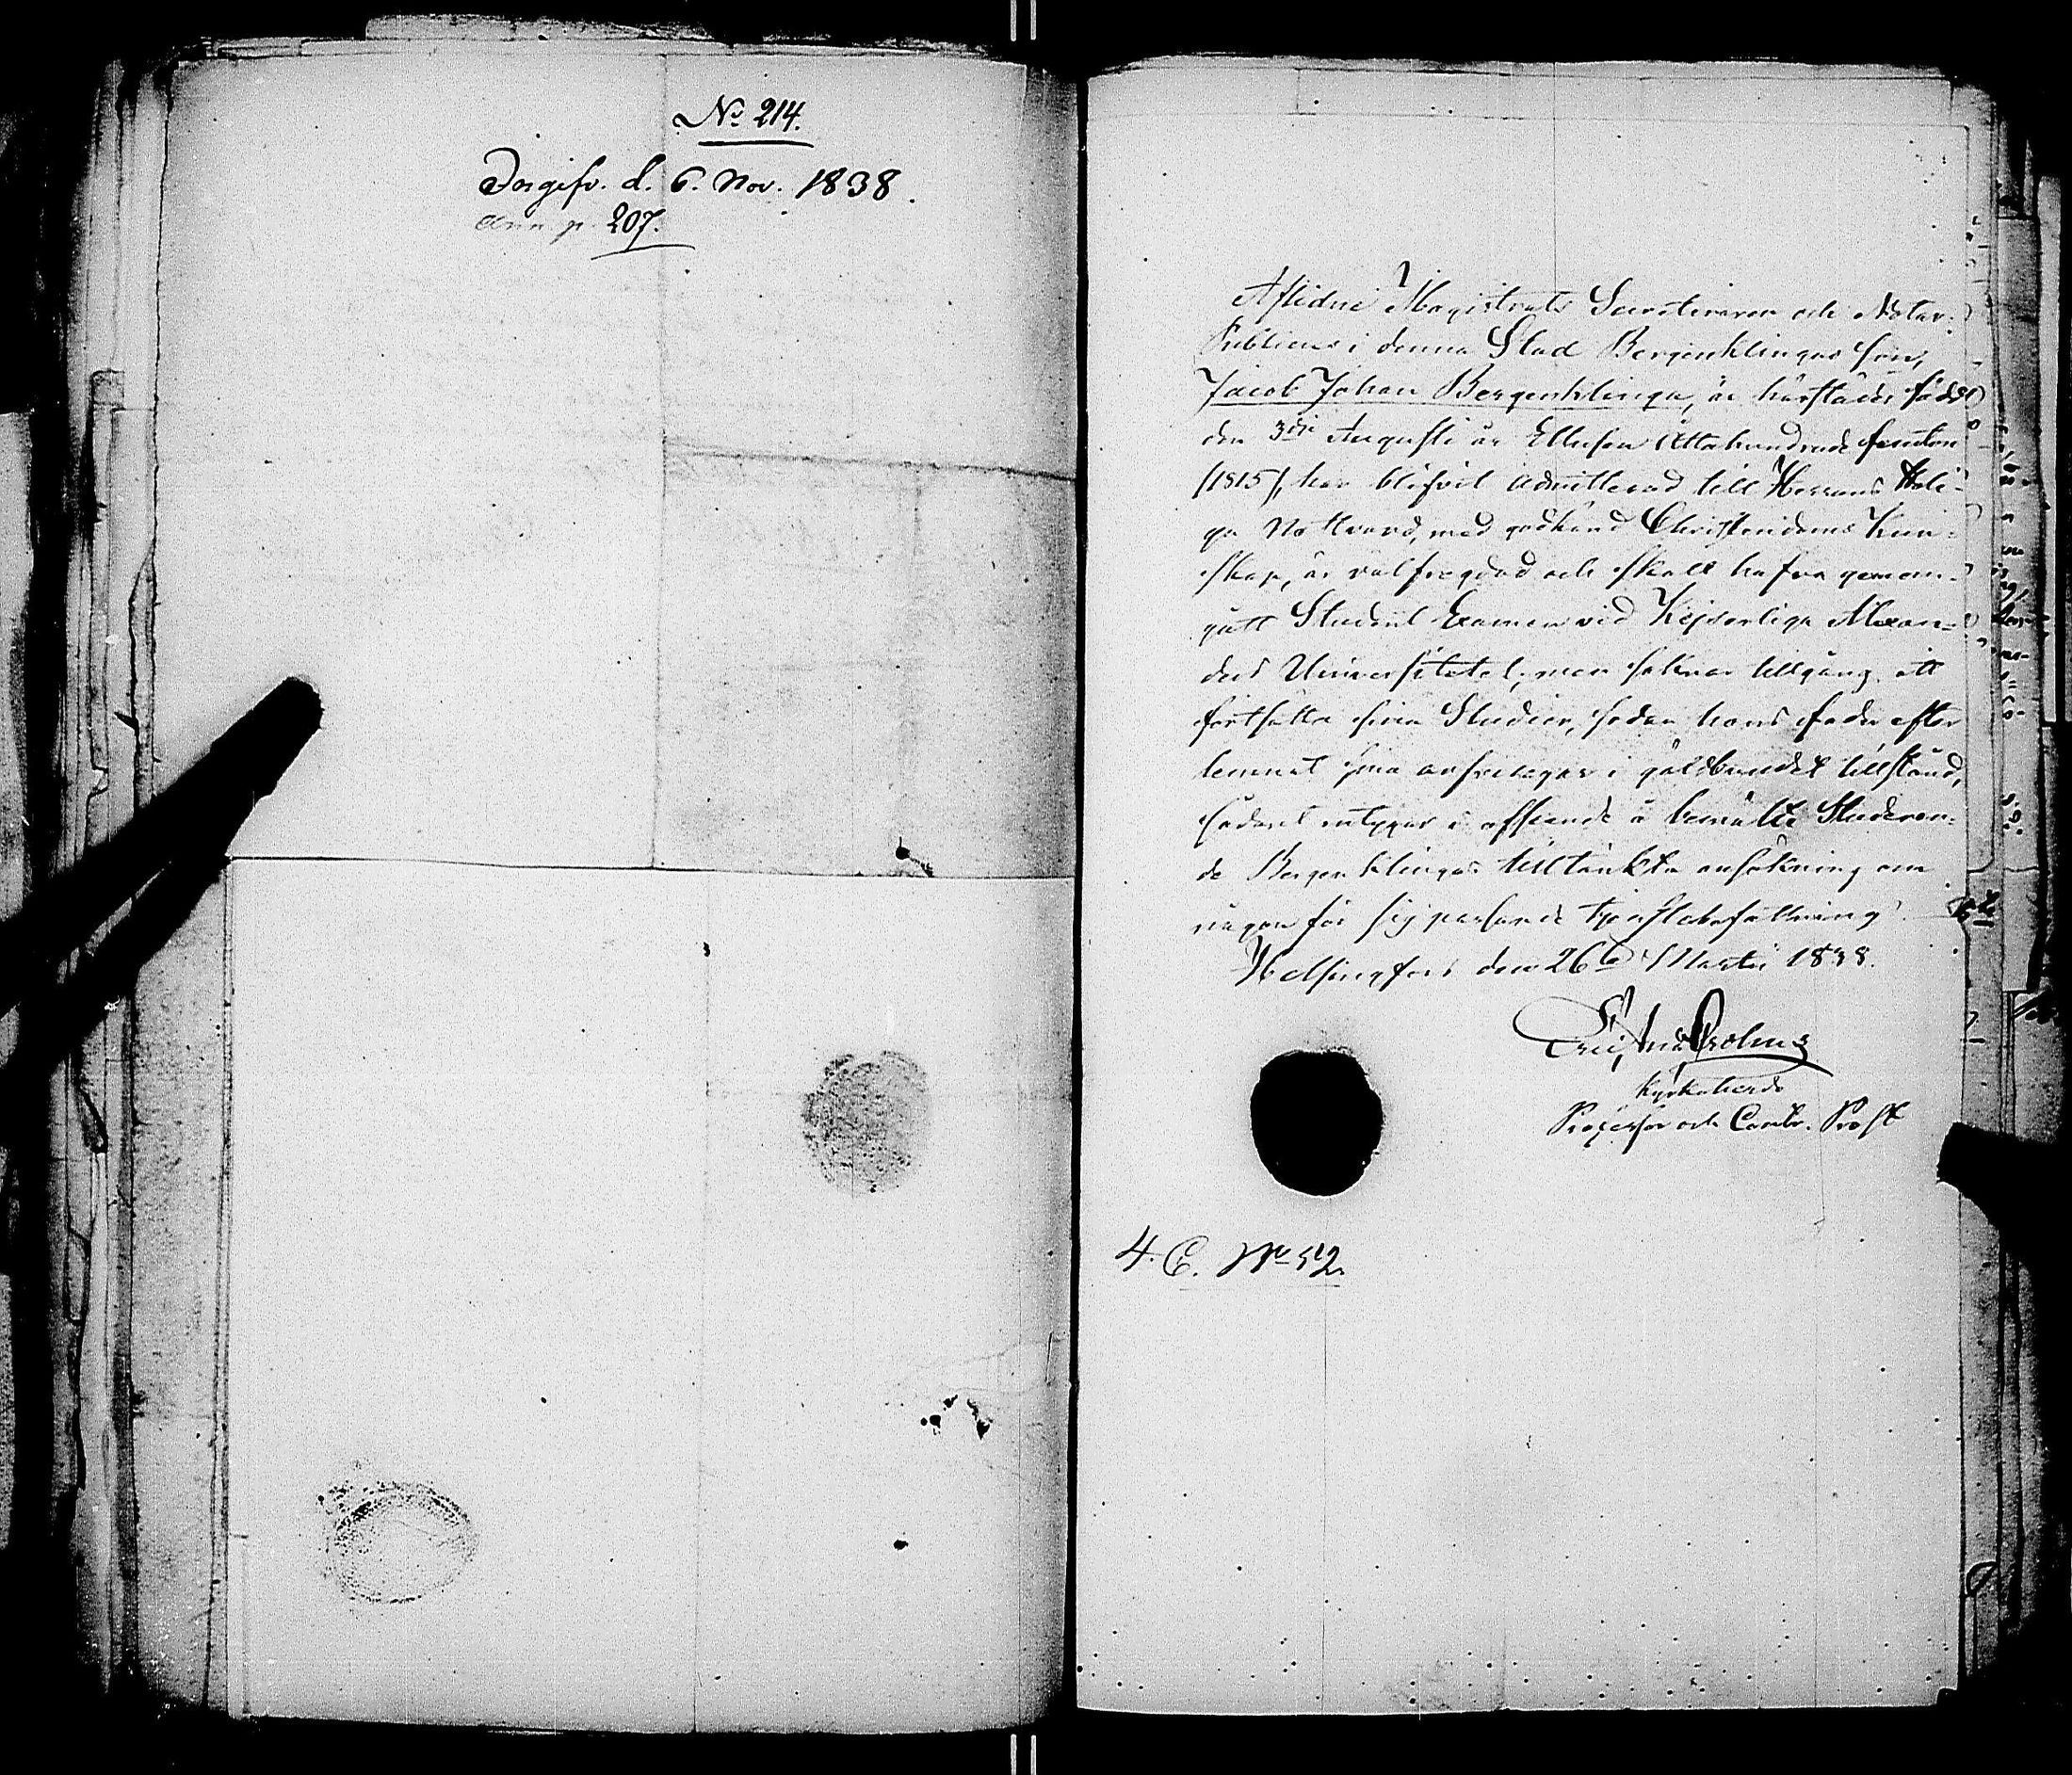 No 214.
Ingifv. d. 6. Nov. 1838.
Ann p. 207.
Aflidne Magistrats Secreteraren och Notar.
Publicus i denna Stad Bergenklingas son,
Jacob Johan Bergenklinga, är härstädes född
den 3die Augusti år Ettusen Åttahundrade femton
/1815/, har blifvit admitterad till Herrans Heli-
ga Nattvard, med godkänd Christendoms Kun-
skap, är välfrägdad och skall hafva genom-
gått Student Examen vid Kejserliga Alexan-
ders Universitetet; men saknar tillgång att
fortsätta sina Studier, sedan hans fader efter
lemnat sina arfvingar i gäldbundet tillstånd,
sådant intygas i afseende å bemälte Studeran-
de Bergenklingas tilltänkta ansökning om
någon för sig passande tjenstebefattning.
Helsingfors den 26te Martii 1838.
Kyrkoherde
Professor och Contr. Prost
4. C. No 52